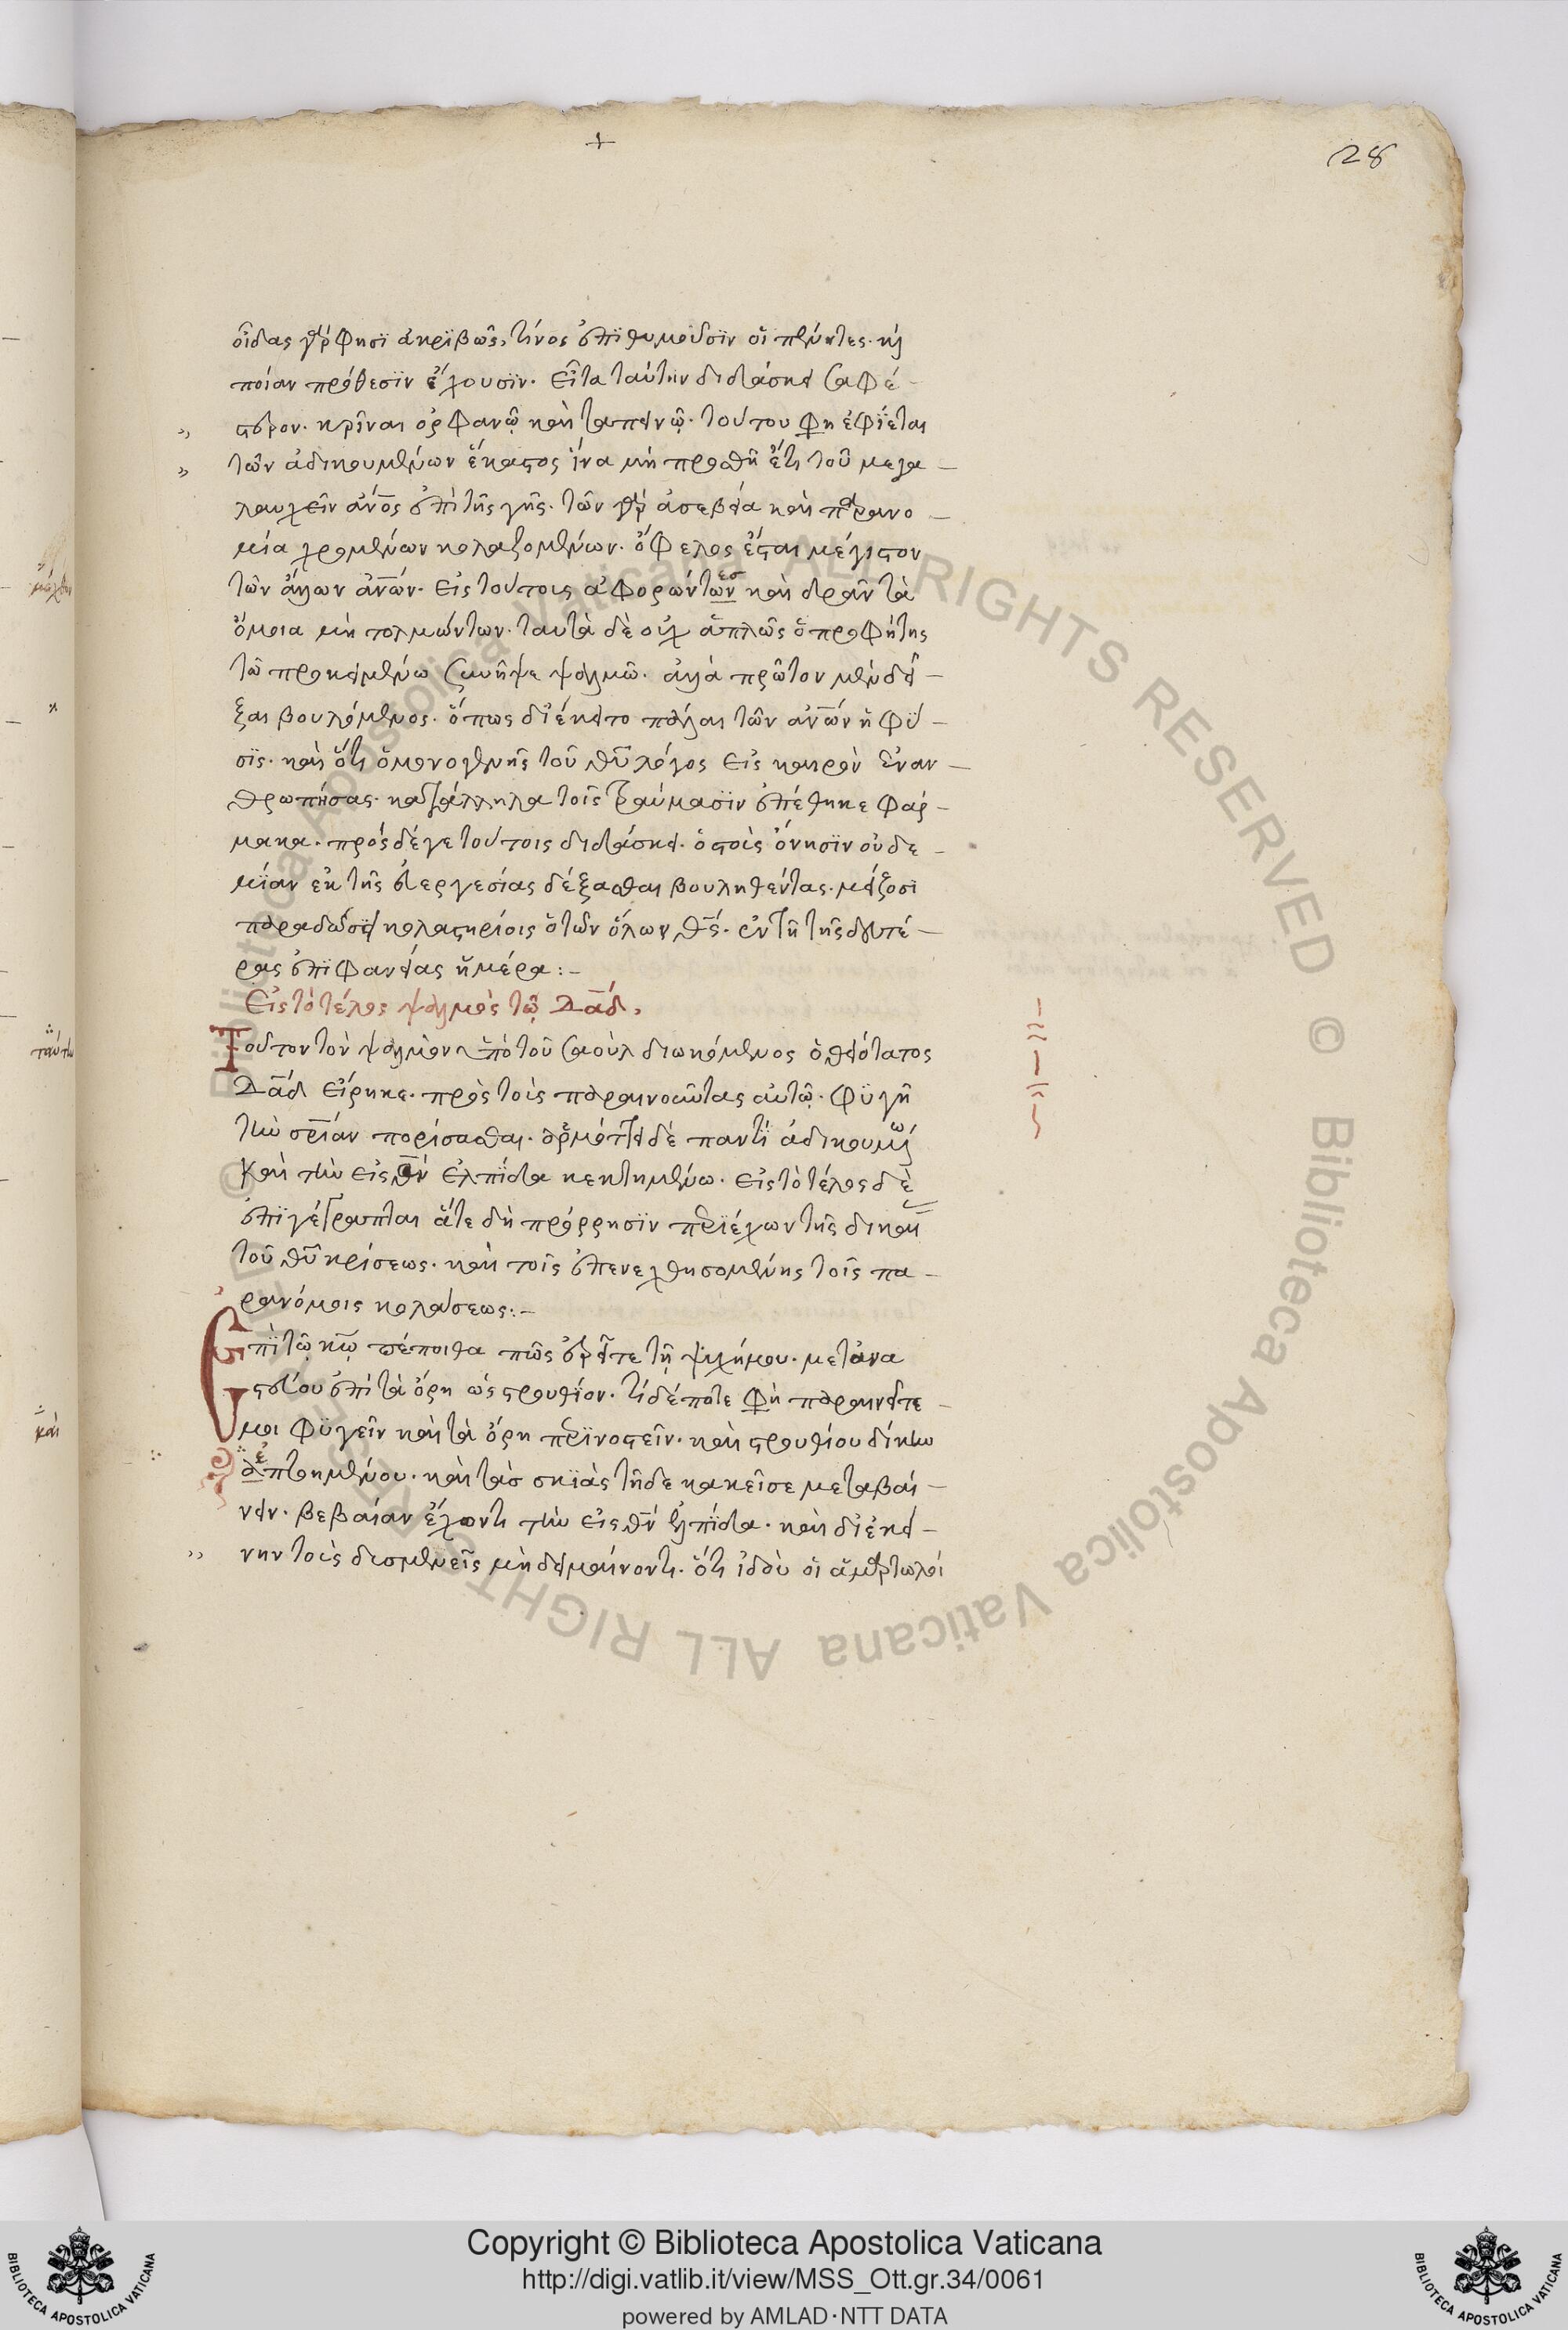 +
28
οἶδας γάρ φησϊ ἀκρϊβῶς, τίνος ἐπϊθυμοῦσϊν οἱ πένητες· κὶ
ποίαν πρόθεσϊν ἔχουσϊν· εἶτα ταύτην διδάσκει σαφέ-
στερον. κρῖναι ὀρφανῷ καὶ ταπεινῷ· τούτου φη ἐφΐεται
τῶν ἀδικουμένων ἕκαστος ἵνα μὴ προσθῇ ἔτι τοῦ μεγα-
λαυχεῖν ἄνος ἐπὶ τῆς γῆς· τῶν γὰρ ἀσεβεία καὶ παρανο-
μία χρωμένων κολαζομένων· ὄφελος ἔσται μέγιστον
τῶν ἄλλων ἀνῶν· εἰς τούτους ἀφορώντων ες καὶ δρᾶν τὰ
ὅμοια μὴ τολμώντων· ταυτὰ δὲ οὐχ ἁπλῶς ὁ προφήτης
τῶ προκειμένω συνῆψε ψαλμῶ· ἀλλὰ πρῶτον μὲν δεῖ-
ξαι βουλόμενος· ὅπως διέκειτο πάλαι τῶν ἀνῶν ἡ φΰ-
σϊς· καὶ ὅτι ὁ μονογενὴς τοῦ θῦ λόγος εἰς καιρὸν ἐναν-
θρωπήσας· κατάλληλα τοῖς τραύμασϊν ἐπέθηκε φάρ-
μακα. πρὸς δέ γε τούτοις διδάσκει· ὁ τοὺς ὄνησϊν οὐδε-
μΐαν ἐκ τῆς εὐεργεσίας δέξασθαι βουληθέντας· μείζοσϊ
παραδώσει κολαστηρίοις ὁ τῶν ὅλων θς· ἐν τῆ τῆς δευτέ-
ρας ἐπϊφανείας ἡμέρα:-
Εἰς τὸ τέλος ψαλμὸς τῷ Δαδ,
Τοῦτον τὸν ψαλμὸν ὑπὸ τοῦ σαοὺλ διωκόμενος ὁ θειότατος
Δαδ εἴρηκε· πρὸς τοὺς παραινοῦντας αὐτῷ· φϋγῆ
τὴν σρίαν πορίσασθαι. ἁρμόττει δέ παντὶ ἀδικουμένω
καὶ τὴν εἰς θν ἐλπΐδα κεκτημένω· εἰς τὸ τέλος δὲ
ἐπϊγέγραπται ἅτε δὴ πρόρρησϊν περϊέχων τῆς δικαί
τοῦ θῦ κρίσεως· καὶ τοῖς ἐπενεχθησομένης τοῖς πα-
ρανόμοις κολάσεως:-
Ἐπὶ τῷ κω πέποιθα πῶς ἐρεῖτε τῇ ψυχῇ μου· μετανα
στεύου ἐπὶ τὰ ὄρη ὡς στρουθίον· τί δέ ποτε φη παραινεῖτε
μοι φϋγεῖν καὶ τὰ ὄρη περϊνοστεῖν· καὶ στρουθίου δίκην
ἐπτοημένου· καὶ τὰς σκϊὰς τῆδε κακεῖσε μεταβαί-
νειν· βεβαίαν ἔχοντι τὴν εἰς θν ἐλπΐδα· καὶ δἰ ἐκεί-
νην τοὺς δυσμενεῖς μὴ δειμαίνοντι· ὅτι ἰδοὺ οἱ ἁμαρτωλοὶ
Copyright © Biblioteca Apostolica Vaticana
http://digi.vatlib.it/view/MSS_Ott.gr.34/0061
powered by AMLAD·NTT DATA